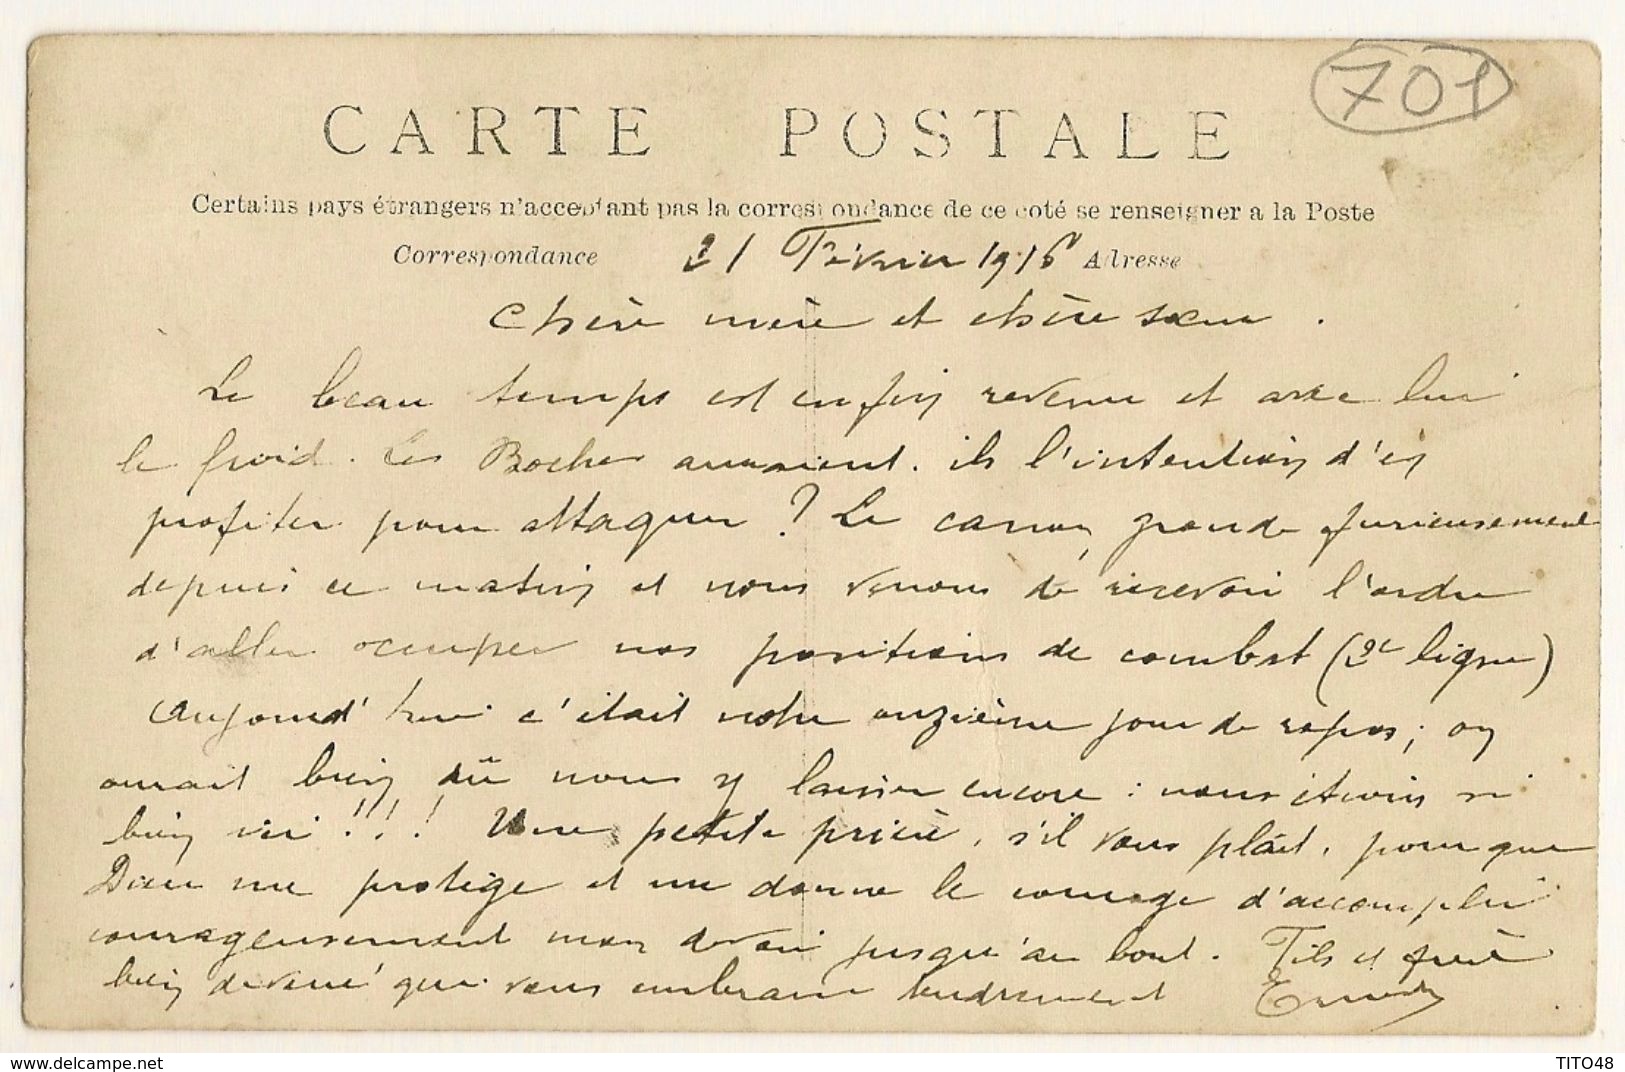 701
CARTE POSTALE
Certains pays étrangers n'acceptant pas la correspondance de ce coté se renseigner a la Poste
Correspondance 21 Février 1916 Adresse
Chère mère et chère sœur.
Le beau temps est enfin revenu et avec lui
le froid. Les Boches auraient-ils l'intention d'en
profiter pour attaquer ? Le canon gronde furieusement
depuis ce matin et nous venons de recevoir l'ordre
d'aller occuper nos positions de combat (2e ligne)
Aujourd'hui c'était notre onzième jour de repos ; on
aurait bien dû nous y laisser encore : nous étions si
bien ici !!! Une petite prière, s'il vous plaît, pour que
Dieu me protège et me donne le courage d'accomplir
courageusement mon devoir jusqu'au bout. Fils et frère
bien dévoué qui vous embrasse tendrement Ernest
delcampe.net
TITO48